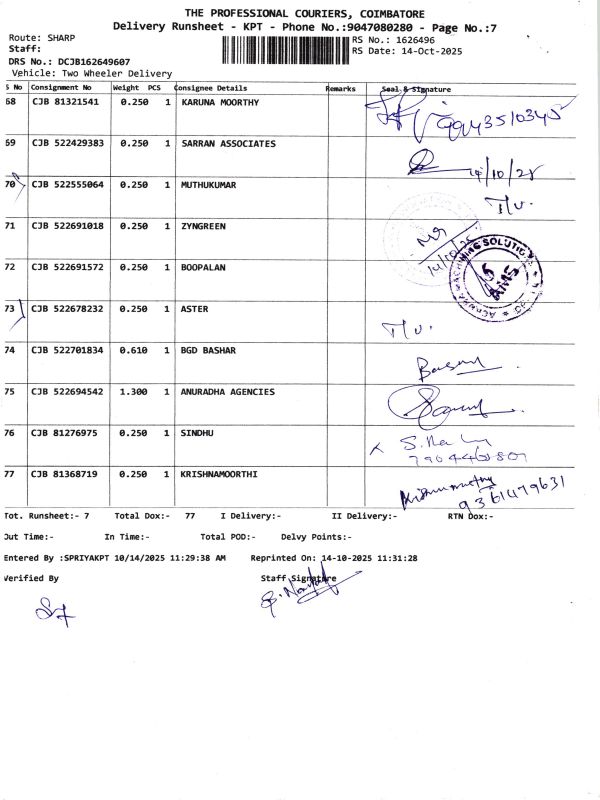 THE PROFESSIONAL COURIERS, COIMBATORE
Delivery Runsheet - KPT - Phone No.:9047080280 - Page No.:7
Route: SHARP
RS No.: 1626496
Staff:
RS Date: 14-Oct-2025
DRS No.: DCJB162649607
Vehicle: Two Wheeler Delivery
S No Consignment No Weight PCS Consignee Details Remarks Seal & Signature
68 CJB 81321541 0.250 1 KARUNA MOORTHY
69 CJB 522429383 0.250 1 SARRAN ASSOCIATES
14/10/25
70 CJB 522555064 0.250 1 MUTHUKUMAR
71 CJB 522691018 0.250 1 ZYNGREEN
14/10/25
72 CJB 522691572 0.250 1 BOOPALAN
AMS
73 CJB 522678232 0.250 1 ASTER
74 CJB 522701834 0.610 1 BGD BASHAR
75 CJB 522694542 1.300 1 ANURADHA AGENCIES
76 CJB 81276975 0.250 1 SINDHU
77 CJB 81368719 0.250 1 KRISHNAMOORTHI
9361479631
Tot. Runsheet:- 7 Total Dox:- 77 I Delivery:- II Delivery:- RTN Dox:-
Out Time:- In Time:- Total POD:- Delvy Points:-
Entered By :SPRIYAKPT 10/14/2025 11:29:38 AM Reprinted On: 14-10-2025 11:31:28
Verified By Staff Signature